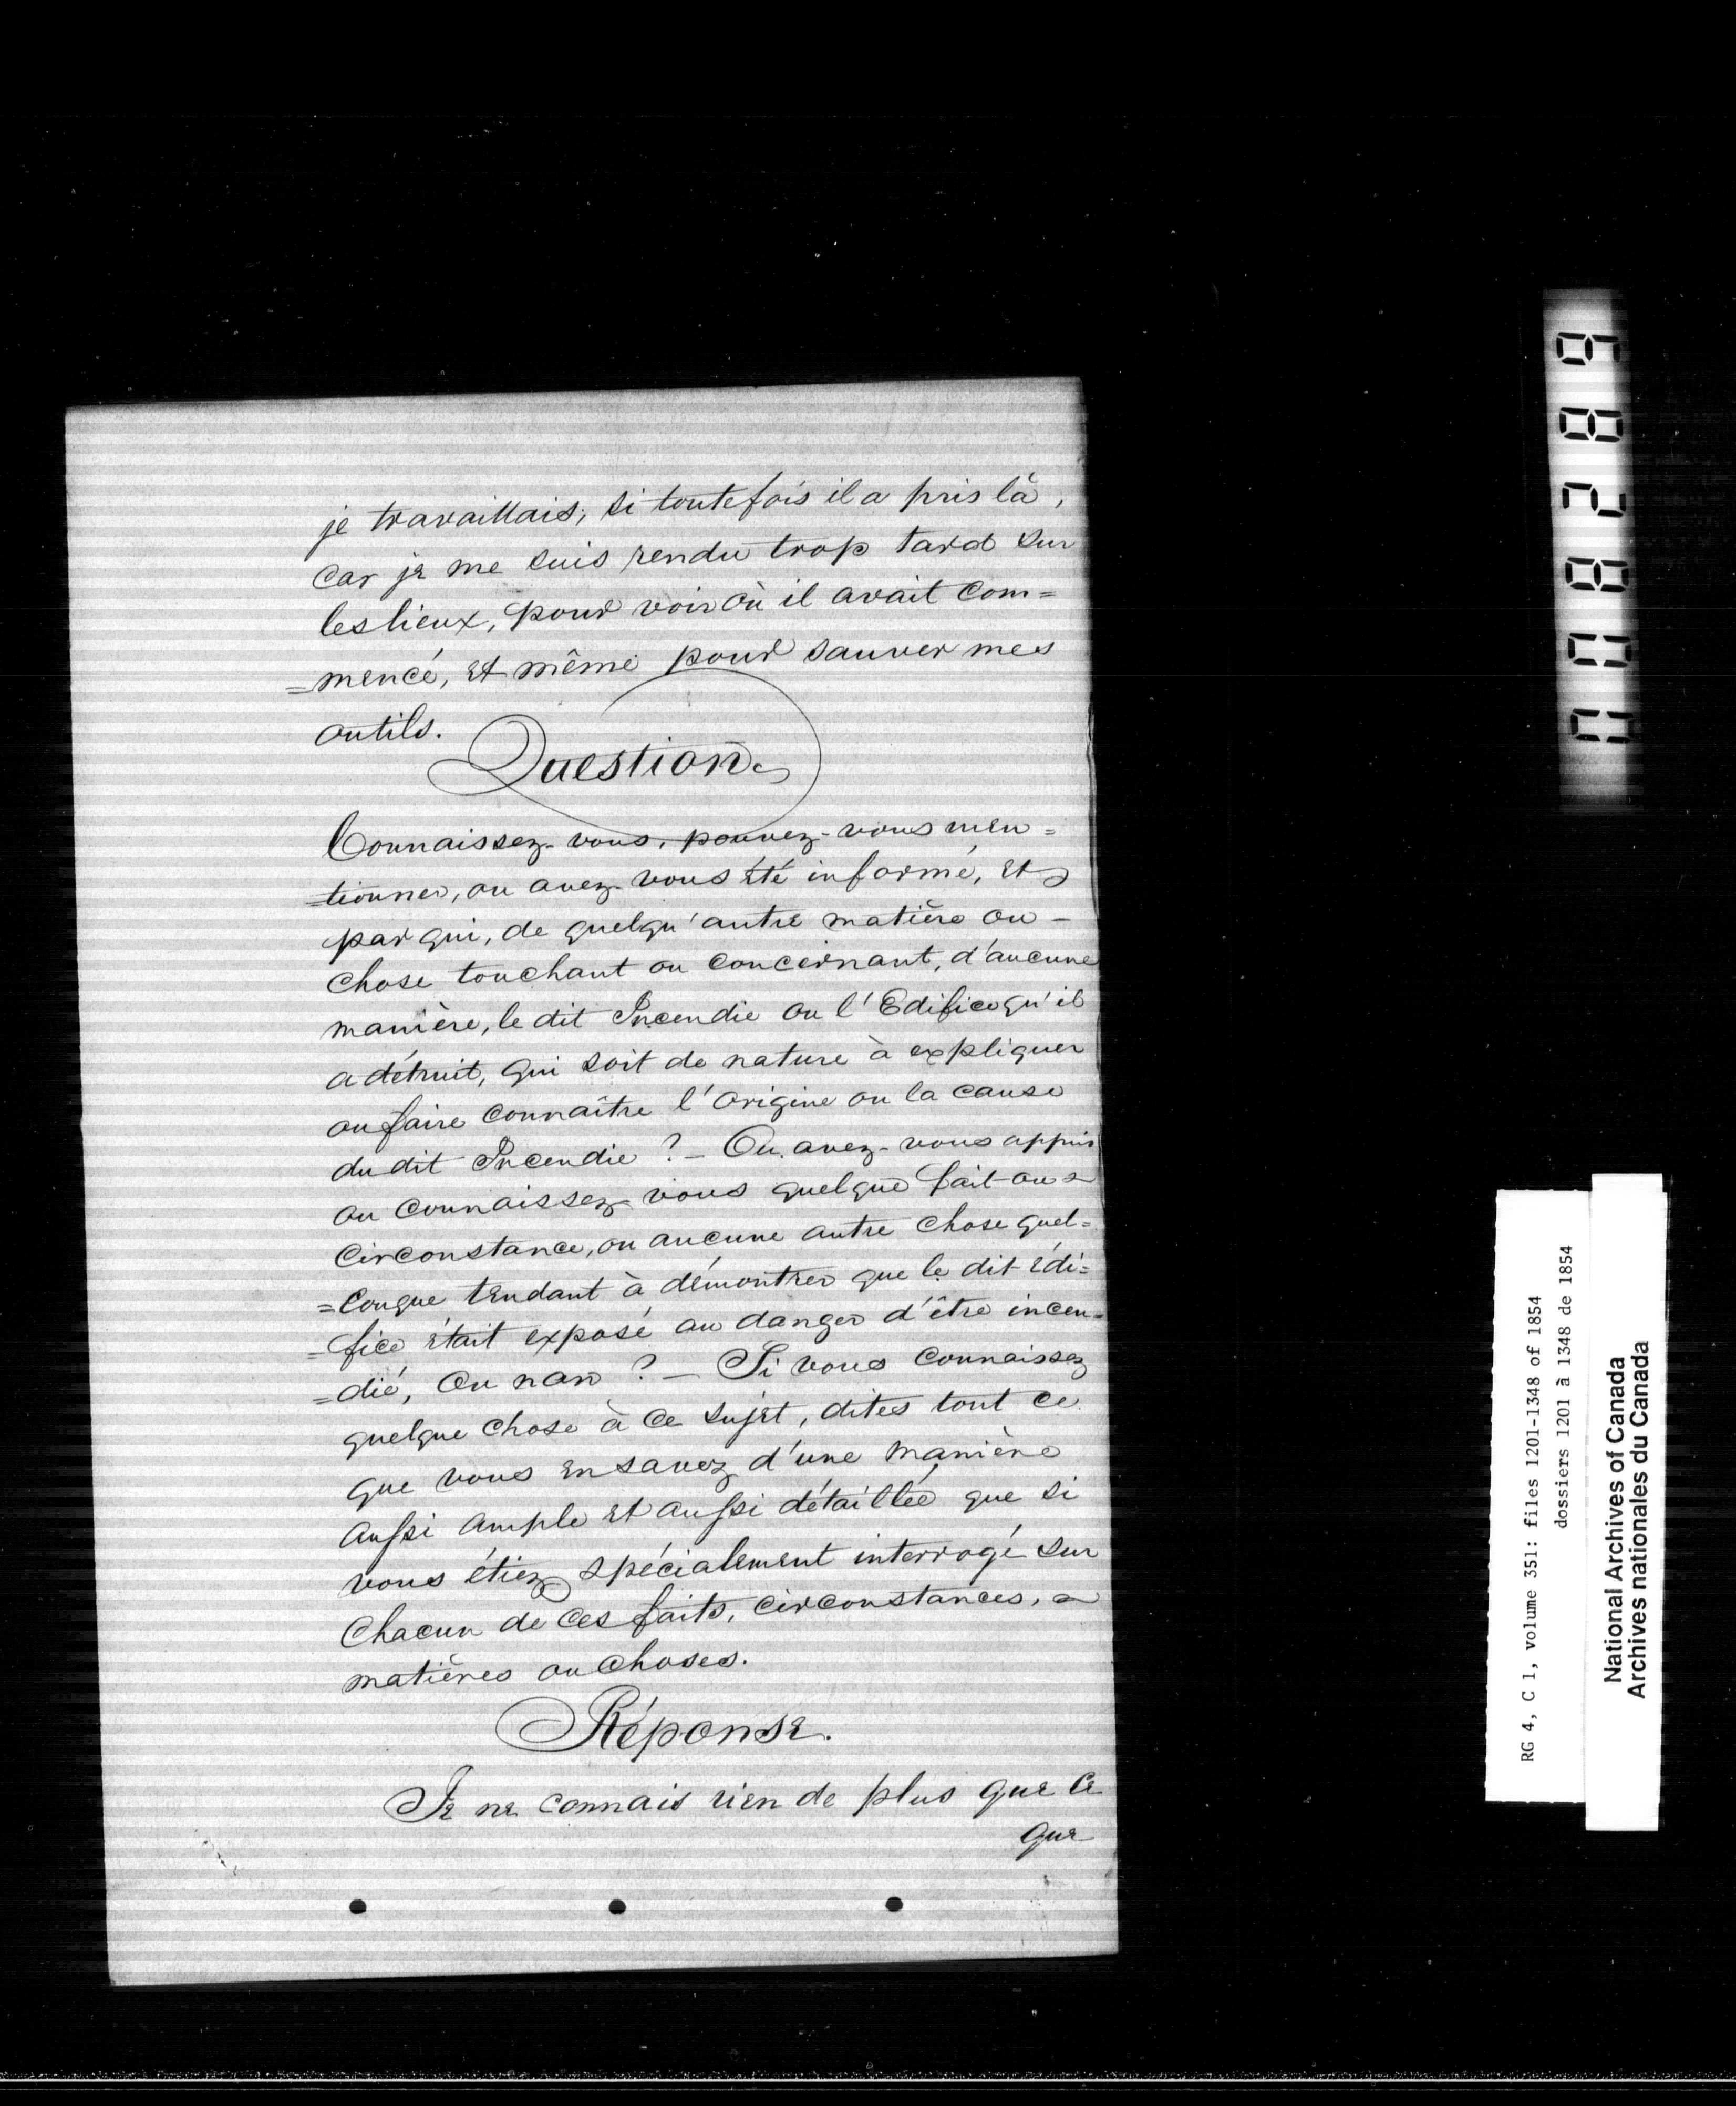 je travaillais, si toutefois il a pris là,
car je me suis rendu trop tard sur
les lieux, pour voir où il avait com=
=mencé, et même pour sauver mes
outils.
Question.
Connaissez-vous, pouvez-vous men=
=tionner, ou avez-vous été informé, et
par qui, de quelqu'autre matière ou -
chose touchant ou concernant, d'aucune
manière, le dit Incendie ou l'Edifice qu'il
a détruit, qui soit de nature à expliquer
ou faire connaître l'origine ou la cause
du dit Incendie ? - Ou avez-vous appris
ou connaissez-vous quelque fait ou
circonstance, ou aucune autre chose quel=
=conque tendant à démontrer que le dit édi=
=fice était exposé au danger d'être incen=
=dié, ou non ? - Si vous connaissez
quelque chose à ce sujet, dites tout ce
que vous en savez d'une manière
aussi ample et aussi détaillée que si
vous étiez spécialement interrogé sur
chacun de ces faits, circonstances,
matières ou choses.
Réponse.
Je ne connais rien de plus que ce
que
008289
RG 4, C 1, volume 351: files 1201-1348 of 1854
dossiers 1201 à 1348 de 1854
National Archives of Canada
Archives nationales du Canada